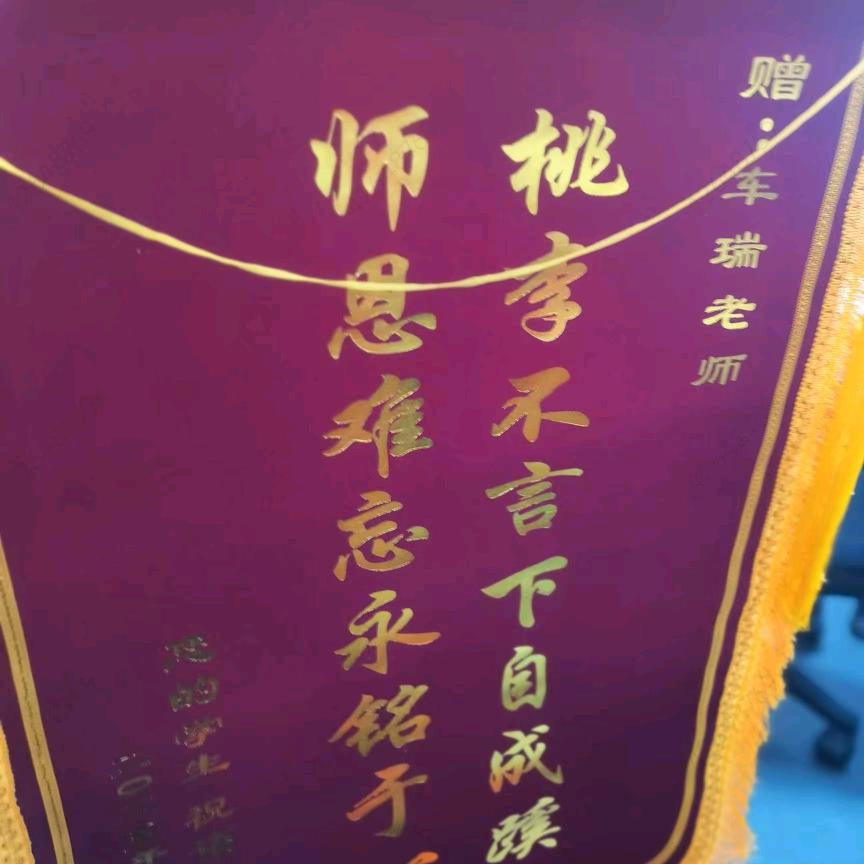 赠：车瑞老师
桃李不言下自成蹊
师恩难忘永铭于
您的学生祝
二〇二